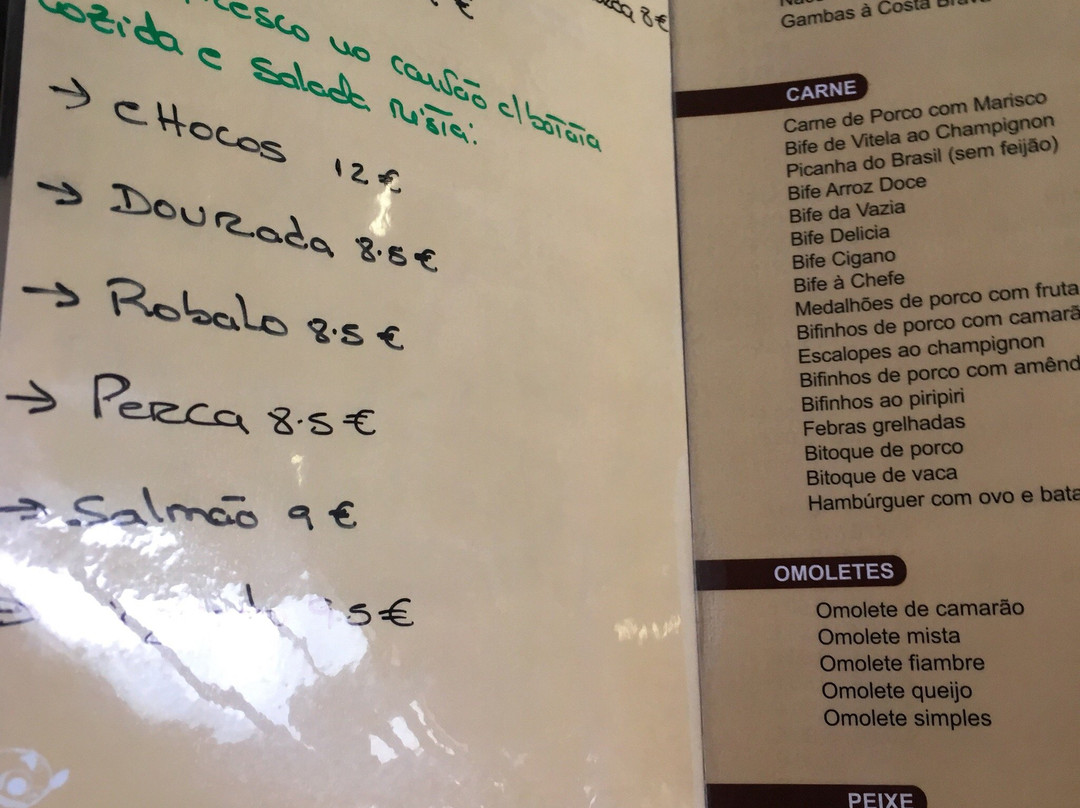 €
8€
fresco no carvão c/ batata
cozida e salada mista:
→ CHOCOS 12€
→ DOURADA 8.5€
→ Robalo 8.5€
→ PERCA 8.5€
→ Salmão 9€
5€
Gambas à Costa Brava
CARNE
Carne de Porco com Marisco
Bife de Vitela ao Champignon
Picanha do Brasil (sem feijão)
Bife Arroz Doce
Bife da Vazia
Bife Delicia
Bife Cigano
Bife à Chefe
Medalhões de porco com fruta
Bifinhos de porco com camarã
Escalopes ao champignon
Bifinhos de porco com amênd
Bifinhos ao piripiri
Febras grelhadas
Bitoque de porco
Bitoque de vaca
Hambúrguer com ovo e bata
OMOLETES
Omolete de camarão
Omolete mista
Omolete fiambre
Omolete queijo
Omolete simples
PEIXE